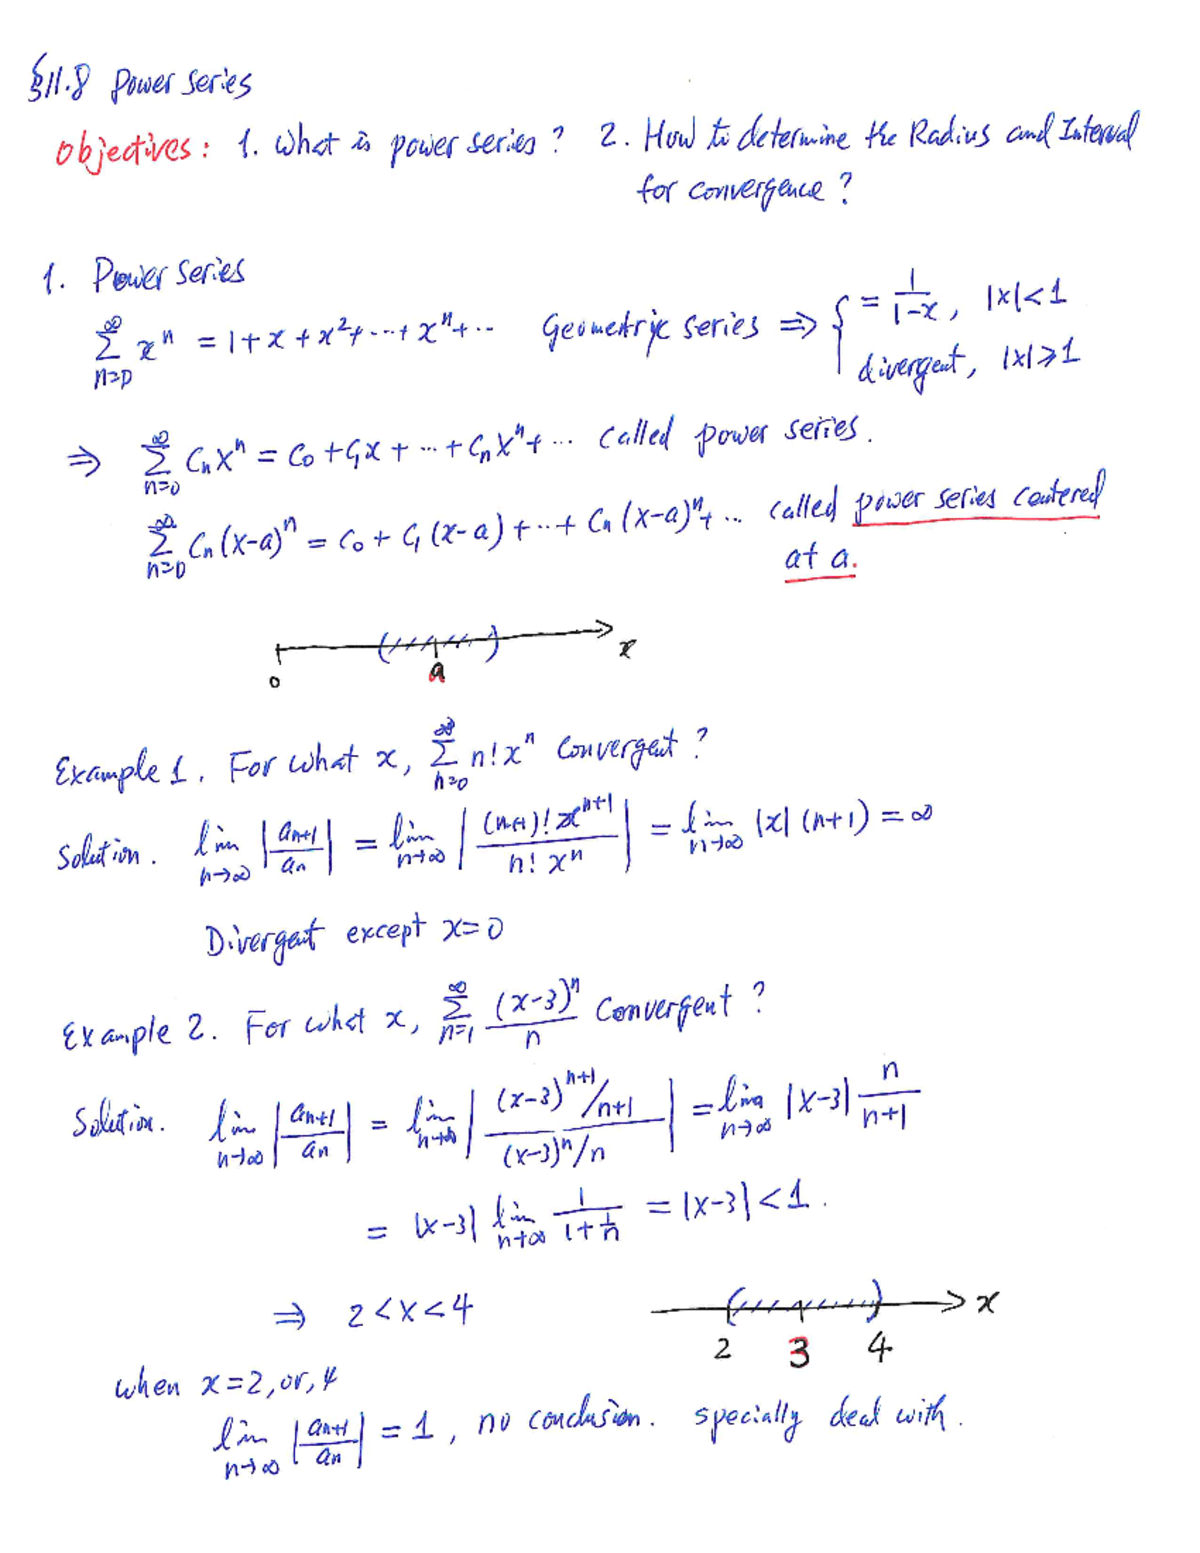 §11.8 Power Series
Objectives: 1. What is power series? 2. How to determine the Radius and Interval
for convergence?
1. Power Series
∑_{n=0}^{∞} x^n = 1 + x + x^2 + ··· + x^n + ··· Geometric series ⇒ { = 1/(1-x), |x|<1
divergent, |x|⩾1
⇒ ∑_{n=0}^{∞} C_n x^n = C_0 + C_1 x + ··· + C_n x^n + ··· called power series.
∑_{n=0}^{∞} C_n (x-a)^n = C_0 + C_1 (x-a) + ··· + C_n (x-a)^n + ··· called power series centered
at a.
0 a x
Example 1. For what x, ∑_{n=0}^{∞} n! x^n convergent?
Solution. lim_{n→∞} |a_{n+1}/a_n| = lim_{n→∞} |(n+1)! x^{n+1} / n! x^n| = lim_{n→∞} |x| (n+1) = ∞
Divergent except x=0
Example 2. For what x, ∑_{n=1}^{∞} (x-3)^n / n Convergent?
Solution. lim_{n→∞} |a_{n+1}/a_n| = lim_{n→∞} |((x-3)^{n+1}/n+1) / ((x-3)^n/n)| = lim_{n→∞} |x-3| n/(n+1)
= |x-3| lim_{n→∞} 1/(1+1/n) = |x-3| < 1.
⇒ 2 < x < 4
x
2 3 4
when x=2, or, 4
lim_{n→∞} |a_{n+1}/a_n| = 1, no conclusion. specially deal with.